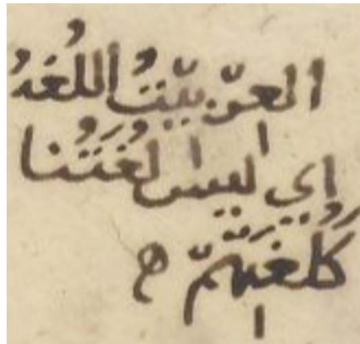 العربيّتُ اللُغهُ
اي ليس لُغَتُنا
كَلُغَتهمّ ه